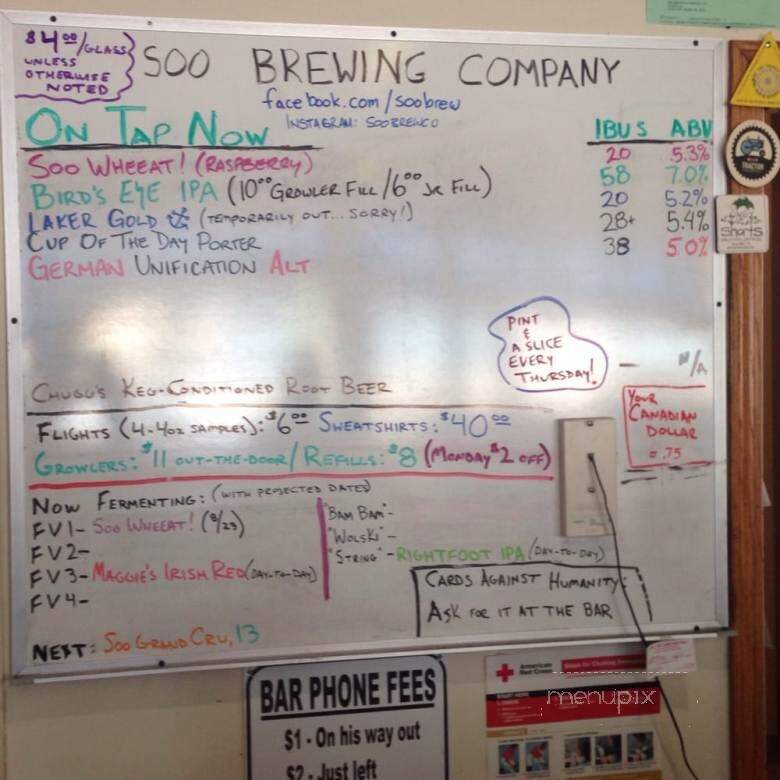 $4.00/GLASS
UNLESS
OTHERWISE
NOTED
SOO BREWING COMPANY
facebook.com/soobrew
INSTAGRAM: SOOBREWCO
ON TAP NOW IBUS ABV
SOO WHEEAT! (RASPBERRY) 20 5.3%
BIRD'S EYE IPA (10.00 GROWLER FILL/6.00 Jr FILL) 58 7.0%
LAKER GOLD (TEMPORARILY OUT... SORRY!) 20 5.2%
CUP OF THE DAY PORTER 28+ 5.4%
GERMAN UNIFICATION ALT 38 5.0%
PINT
&
A SLICE
EVERY
THURSDAY!
CHUGG'S KEG-CONDITIONED ROOT BEER - N/A
YOUR
CANADIAN
DOLLAR
= .75
FLIGHTS (4-4oz SAMPLES): $6.00 SWEATSHIRTS: $40.00
GROWLERS: $11 OUT-THE-DOOR/REFILLS: $8 (MONDAY $2 OFF)
NOW FERMENTING: (WITH PROJECTED DATES)
FV1- SOO WHEEAT! (8/23)
FV2-
FV3- MAGGIE'S IRISH RED (DAY-TO-DAY)
FV4-
"BAM BAM"-
"WOLSKI"-
"STRING"- RIGHTFOOT IPA (DAY-TO-DAY)
CARDS AGAINST HUMANITY:
ASK FOR IT AT THE BAR
NEXT: SOO GRAND CRU, 13
TRACTOR
Shorts
BAR PHONE FEES
$1 - On his way out
$2 - Just left
American
Red Cross
menupix